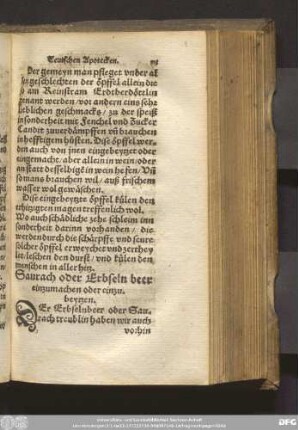 Teutschen Apotecken.
Der gemeyn man pfleget vnder al
geschlechten der öpffel allein die
am Reinstram Erdtherdöttlin
genant werden / vor andern eins sehr
lieblichen geschmacks / zu der speiß
in sonderheit mit Fenchel vnd Zucker
Candit zuuerdämpffen vñ brauchen
in hefftigem hůsten. Dise öpffel wer
den auch von jnen eingebeytzet oder
eingemacht / aber allein in wein / oder
an statt desselbigē in wein hefen / Vñ
so mans brauchen wil / auß frischem
wasser wol gewäschen.
Dise eingebeytzte öpffel külen den
erhitzigten magen treffenlich wol.
Wo auch schädliche zehe schleim inn
sonderheit darinn vorhanden / die
werden durch die schärpffe vnd seure
solcher öpffel erweychet vnd zertheyl
let / leschen den durst / vnd külen den
menschen in aller hitz.
Saurach oder Erbseln beer
einzumachen oder einzu
beytzen.
Er Erbselnbeer oder Sau
rach treublin haben wir auch
vorhin